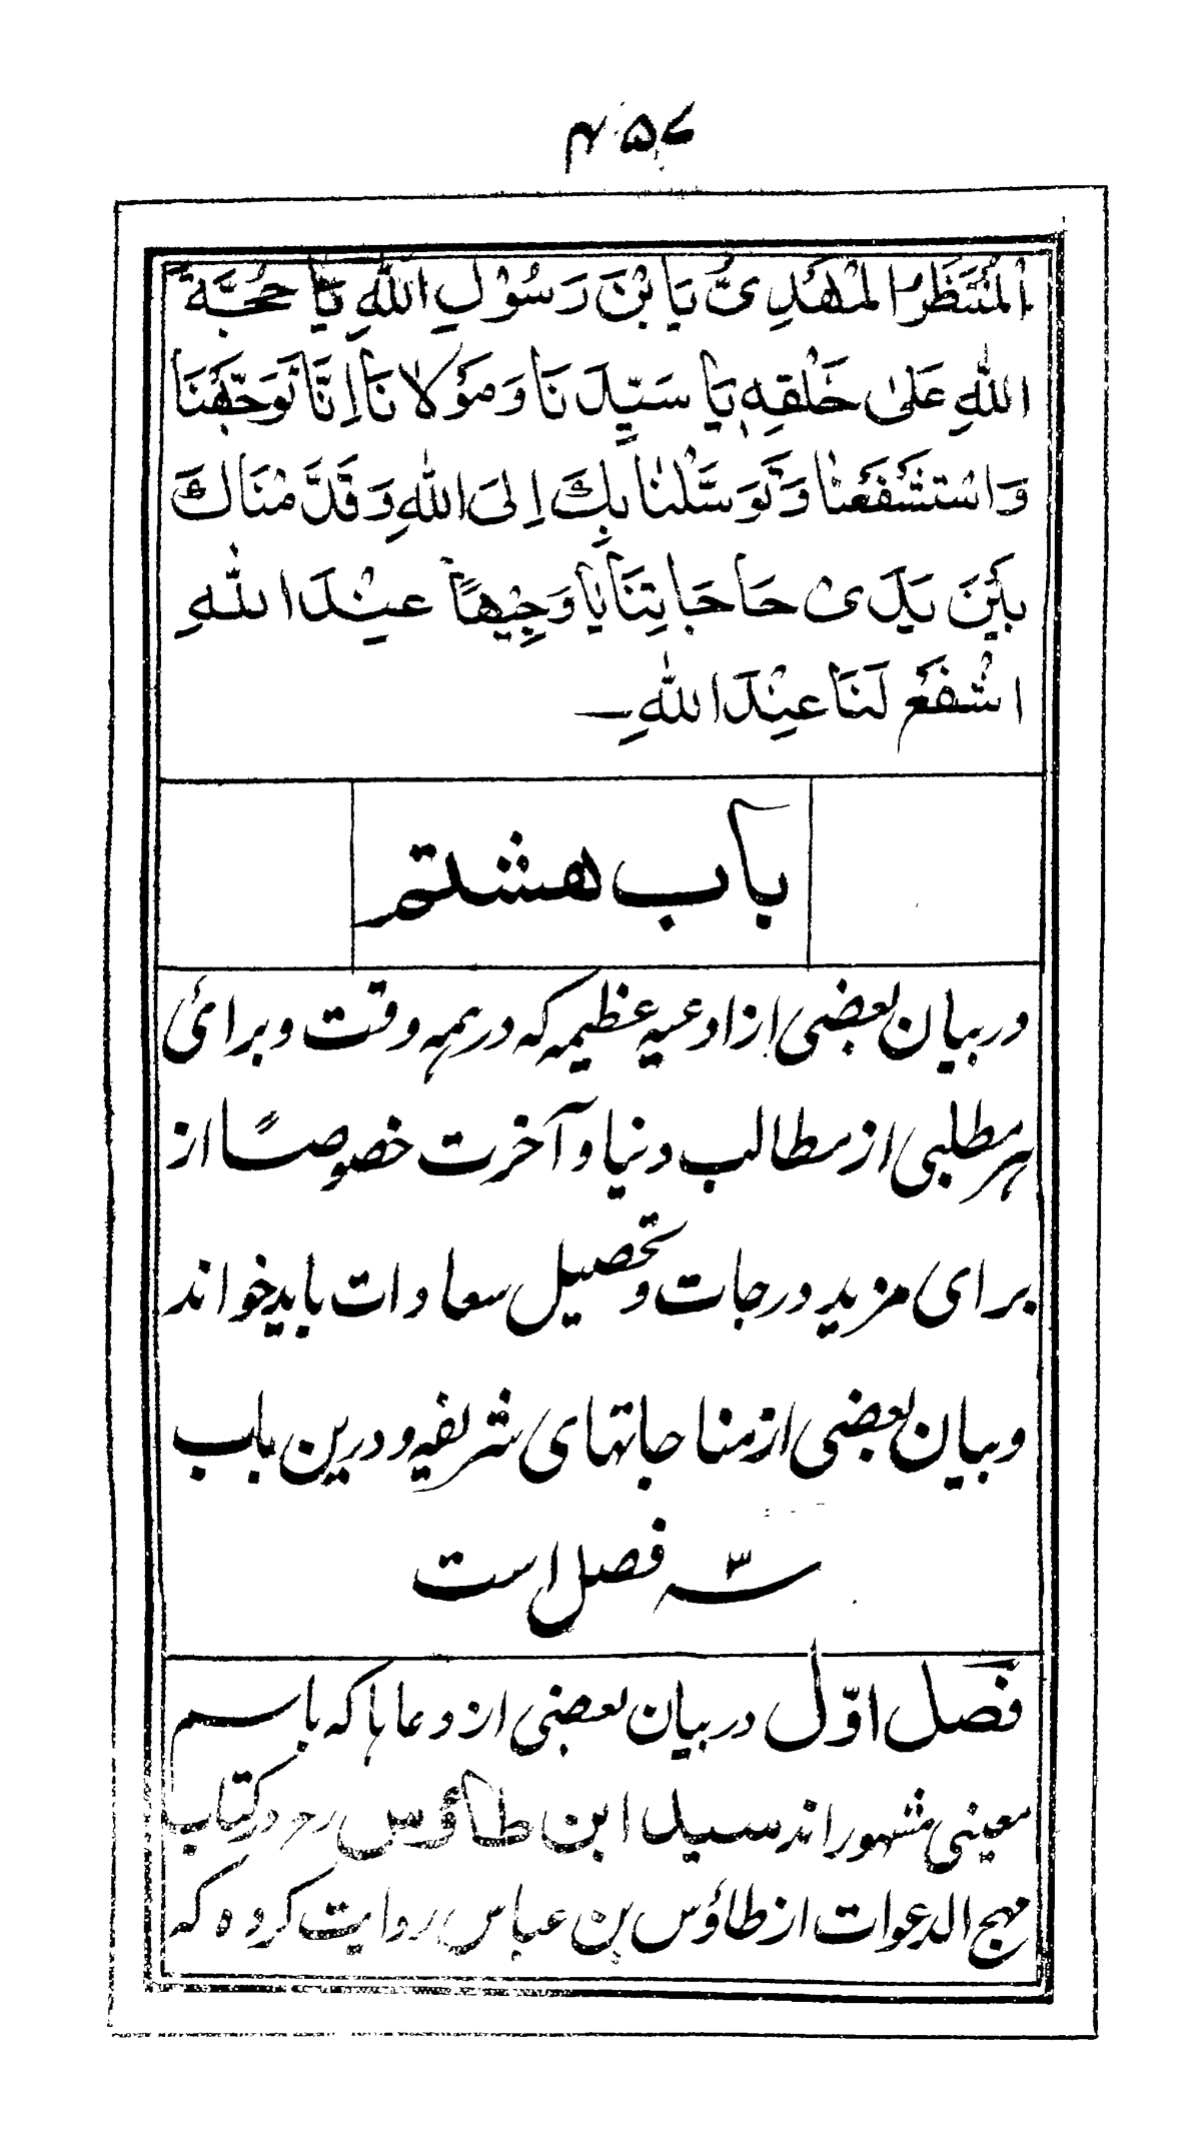 ۴۵۷
الْمُنْتَظَرُ الْمَهْدِىُّ يَا بْنَ رَسُوْلِ اللّٰهِ يَا حُجَّةَ
اللّٰهِ عَلٰى خَلْقِهٖ يَا سَيِّدَنَا وَمَوْلَانَا اِنَّا تَوَجَّهْنَا
وَاسْتَشْفَعْنَا وَتَوَسَّلْنَا بِكَ اِلَى اللّٰهِ وَقَدَّمْنَاكَ
بَيْنَ يَدَىْ حَاجَاتِنَا يَا وَجِيْهًا عِنْدَ اللّٰهِ
اشْفَعْ لَنَا عِنْدَ اللّٰهِ۔
باب هشتم
در بیان بعضی از ادعیه عظیمه که در همه وقت و برائی
هر مطلبی از مطالب دنیا و آخرت خصوصًا از
برای مزید درجات و تحصیل سعادات باید خواند
و بیان بعضی از مناجاتهای شریفه و درین باب
سه ۳ فصل است
فصل اوّل در بیان بعضی از دعاها که باسم
معینی مشهور اند سید ابن طاؤس رح در کتاب
مهج الدعوات از طاؤس بن عباس روایت کرده که